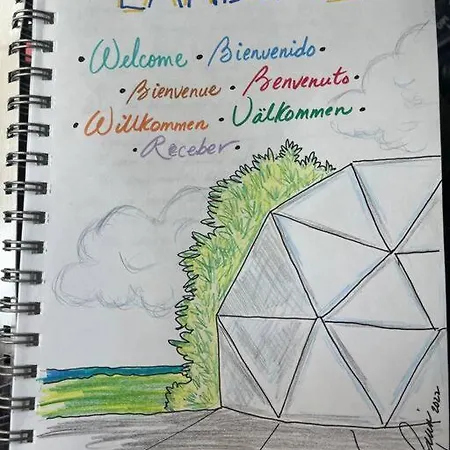 • Welcome • Bienvenido •
• Bienvenue • Benvenuto •
• Willkommen • Välkommen •
• Receber •
2022